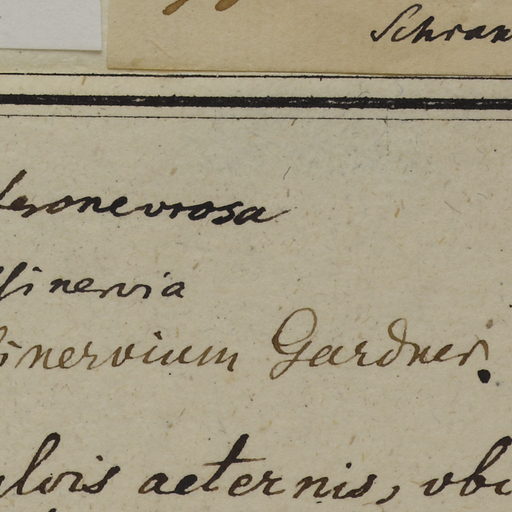 Schran
eronevrosa
inervia
inervium Gardner.
lvis aeternis, vbi